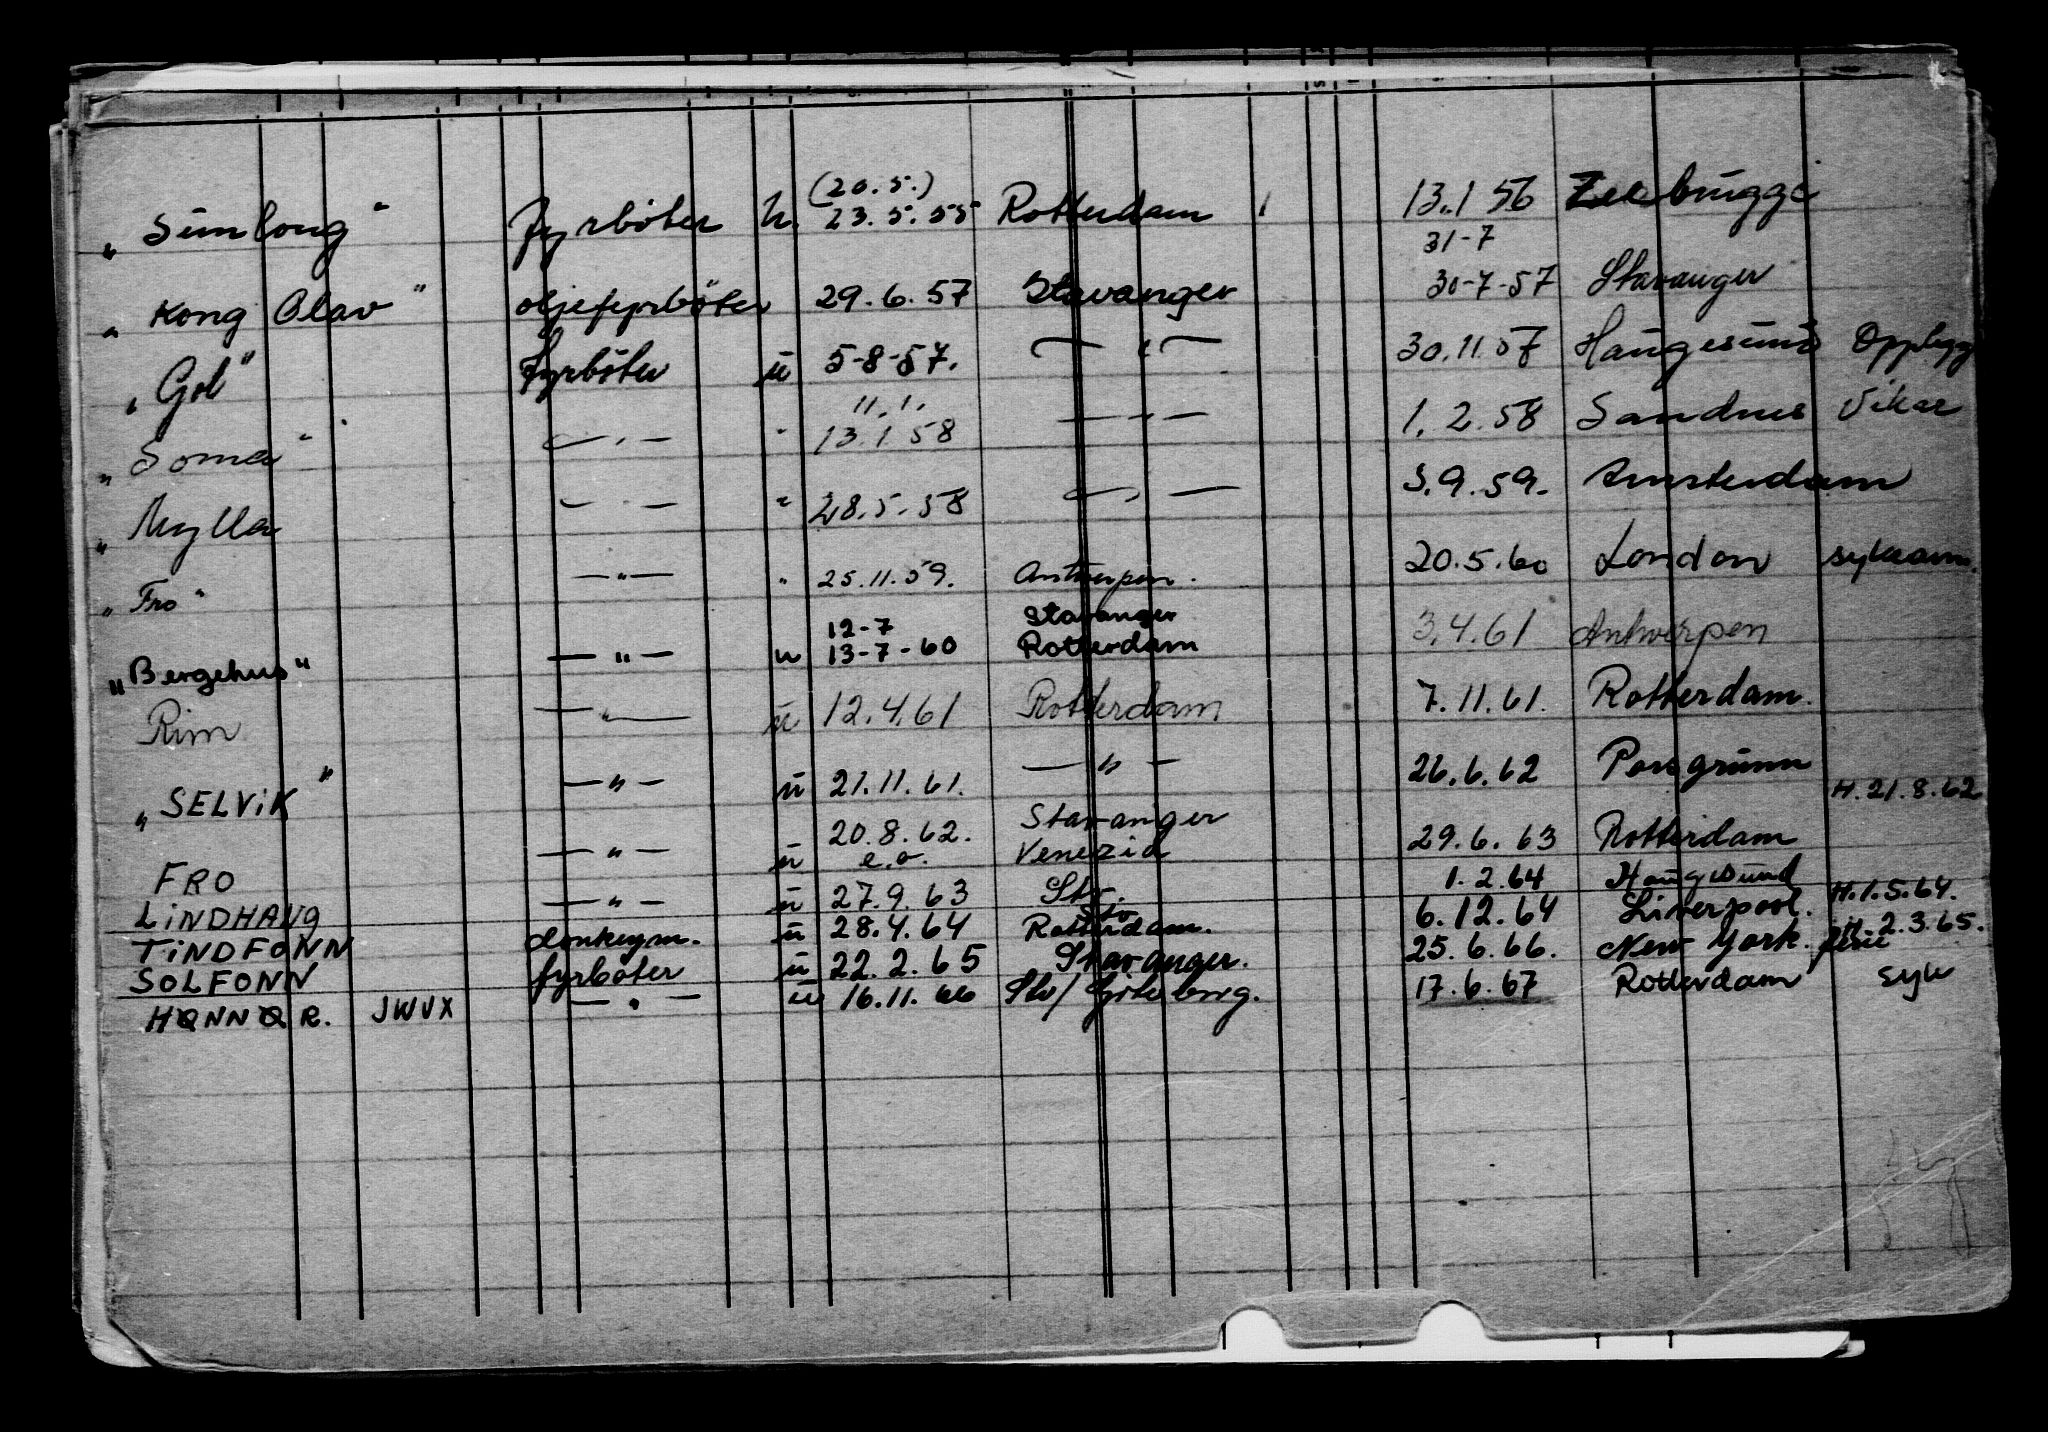 (20.5.)
„Sunlong“ fyrbøter u. 23.5.55 Rotterdam 13.1 56 Zeebrugge
31-7
„Kong Olav“ oljefyrbøter 29.6.57 Stavanger 30-7-57 Stavanger
„Gol“ fyrbøter u 5-8-57. — " — 30.11.57 Haugesund Opplegg
11.1.
„Soma“ — " — " 13.1 58 — " — 1.2.58 Sandnes Vikar
„Mylla — " — " 28.5.58 — " — 3.9.59. Amsterdam
„Fro“ — " — " 25.11.59. Antwerpen. 20.5.60 London sykeavm.
12-7 Stavanger
„Bergehus“ — " — u 13-7-60 Rotterdam 3.4.61 Antwerpen
Rim — " — u 12.4.61 Rotterdam 7.11.61. Rotterdam.
„SELViK“ — " — u 21.11.61. — " — 26.6.62 Porsgrunn
H. 21.8.62
20.8.62. Stavanger
FRO — " — u e.o. Venezia 29.6.63 Rotterdam
LiNDHAUG — " — u 27.9.63 Stv. 1.2.64 Haugesund
Stv H.1.5.64.
TiNDFONN donkeym. u 28.4.64 Rotterdam. 6.12.64 Liverpool.
H. 2.3.65.
SOLFONN fyrbøter u 22.2.65 Stavanger. 25.6.66. New York. ferie
HØNNØR. JWVX — " — u 16.11.66 Stv/Gøteborg. 17.6.67 Rotterdam syk